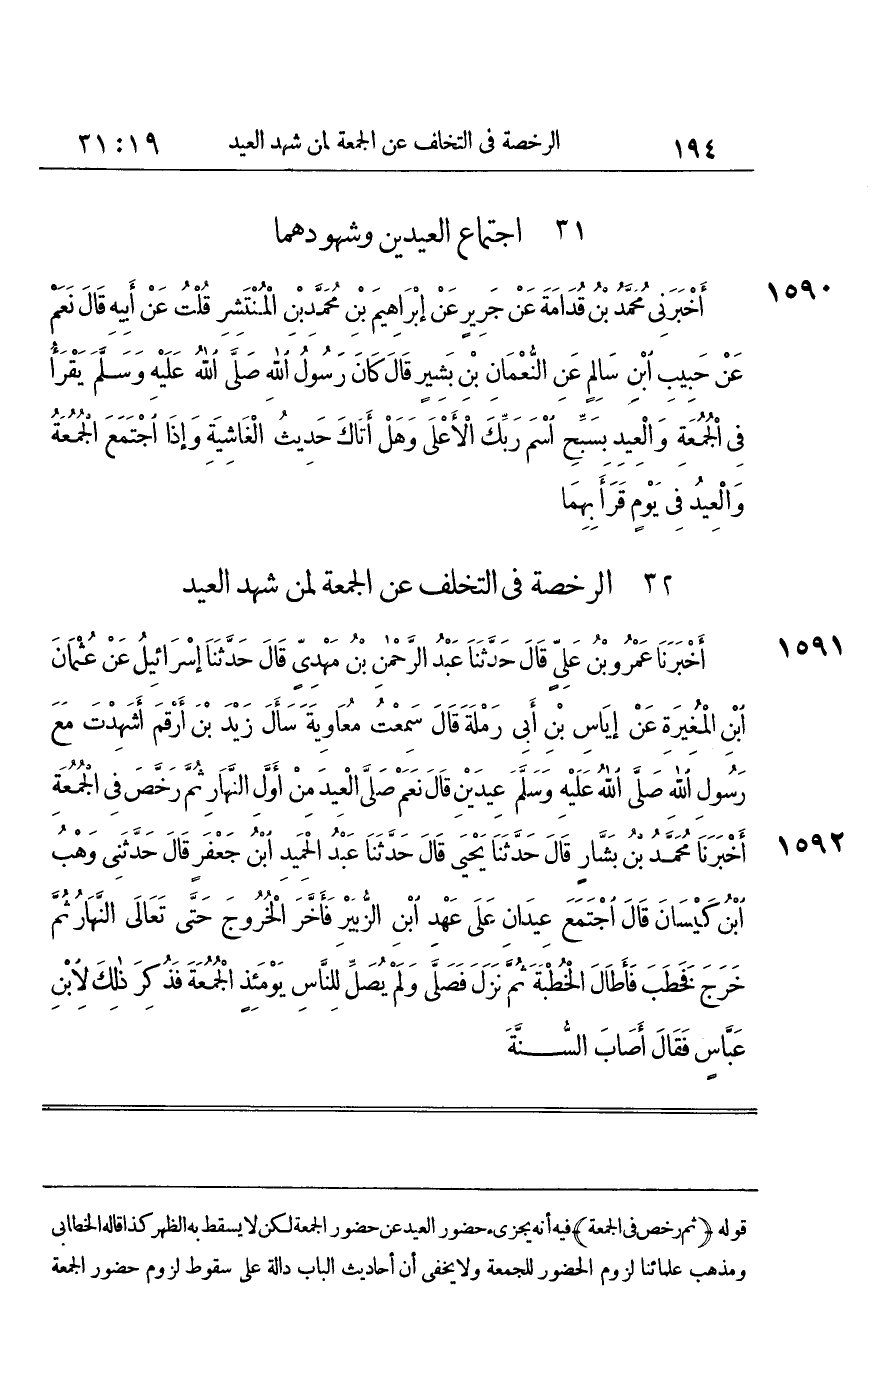 ١٩٤ الرخصة فى التخلف عن الجمعة لمن شهد العيد ١٩ : ٣١
٣١ اجتماع العيدين وشهودهما
١٥٩٠ أَخْبَرَنِى مُحَمَّدُ بْنُ قُدَامَةَ عَنْ جَرِيرٍ عَنْ إِبْرَاهِيمَ بْنِ مُحَمَّدِ بْنِ الْمُنْتَشِرِ قُلْتُ عَنْ أَبِيهِ قَالَ نَعَمْ
عَنْ حَبِيبِ ٱبْنِ سَالِمٍ عَنِ النُّعْمَانِ بْنِ بَشِيرٍ قَالَ كَانَ رَسُولُ ٱللهِ صَلَّى ٱللهُ عَلَيْهِ وَسَلَّمَ يَقْرَأُ
فِى ٱلْجُمُعَةِ وَالْعِيدِ بِسَبِّحِ ٱسْمَ رَبِّكَ الْأَعْلَى وَهَلْ أَتَاكَ حَدِيثُ الْغَاشِيَةِ وَإِذَا ٱجْتَمَعَ الْجُمُعَةُ
وَالْعِيدُ فِى يَوْمٍ قَرَأَ بِهِمَا
٣٢ الرخصة فى التخلف عن الجمعة لمن شهد العيد
١٥٩١ أَخْبَرَنَا عَمْرُو بْنُ عَلِىٍّ قَالَ حَدَّثَنَا عَبْدُ الرَّحْمٰنِ بْنُ مَهْدِىٍّ قَالَ حَدَّثَنَا إِسْرَائِيلُ عَنْ عُثْمَانَ
ٱبْنِ الْمُغِيرَةِ عَنْ إِيَاسِ بْنِ أَبِى رَمْلَةَ قَالَ سَمِعْتُ مُعَاوِيَةَ سَأَلَ زَيْدَ بْنَ أَرْقَمَ أَشَهِدْتَ مَعَ
رَسُولِ ٱللهِ صَلَّى ٱللهُ عَلَيْهِ وَسَلَّمَ عِيدَيْنِ قَالَ نَعَمْ صَلَّى الْعِيدَ مِنْ أَوَّلِ النَّهَارِ ثُمَّ رَخَّصَ فِى الْجُمُعَةِ
١٥٩٢ أَخْبَرَنَا مُحَمَّدُ بْنُ بَشَّارٍ قَالَ حَدَّثَنَا يَحْيَى قَالَ حَدَّثَنَا عَبْدُ الْحَمِيدِ ٱبْنُ جَعْفَرٍ قَالَ حَدَّثَنِى وَهْبُ
ٱبْنُ كَيْسَانَ قَالَ ٱجْتَمَعَ عِيدَانِ عَلَى عَهْدِ ٱبْنِ الزُّبَيْرِ فَأَخَّرَ الْخُرُوجَ حَتَّى تَعَالَى النَّهَارُ ثُمَّ
خَرَجَ فَخَطَبَ فَأَطَالَ الْخُطْبَةَ ثُمَّ نَزَلَ فَصَلَّى وَلَمْ يُصَلِّ لِلنَّاسِ يَوْمَئِذٍ الْجُمُعَةَ فَذُكِرَ ذٰلِكَ لِٱبْنِ
عَبَّاسٍ فَقَالَ أَصَابَ السُّنَّةَ
قوله ﴿ثم رخص فى الجمعة﴾ فيه أنه يجزىء حضور العيد عن حضور الجمعة لكن لا يسقط به الظهر كذا قاله الخطابى
ومذهب علمائنا لزوم الحضور للجمعة ولا يخفى أن أحاديث الباب دالة على سقوط لزوم حضور الجمعة